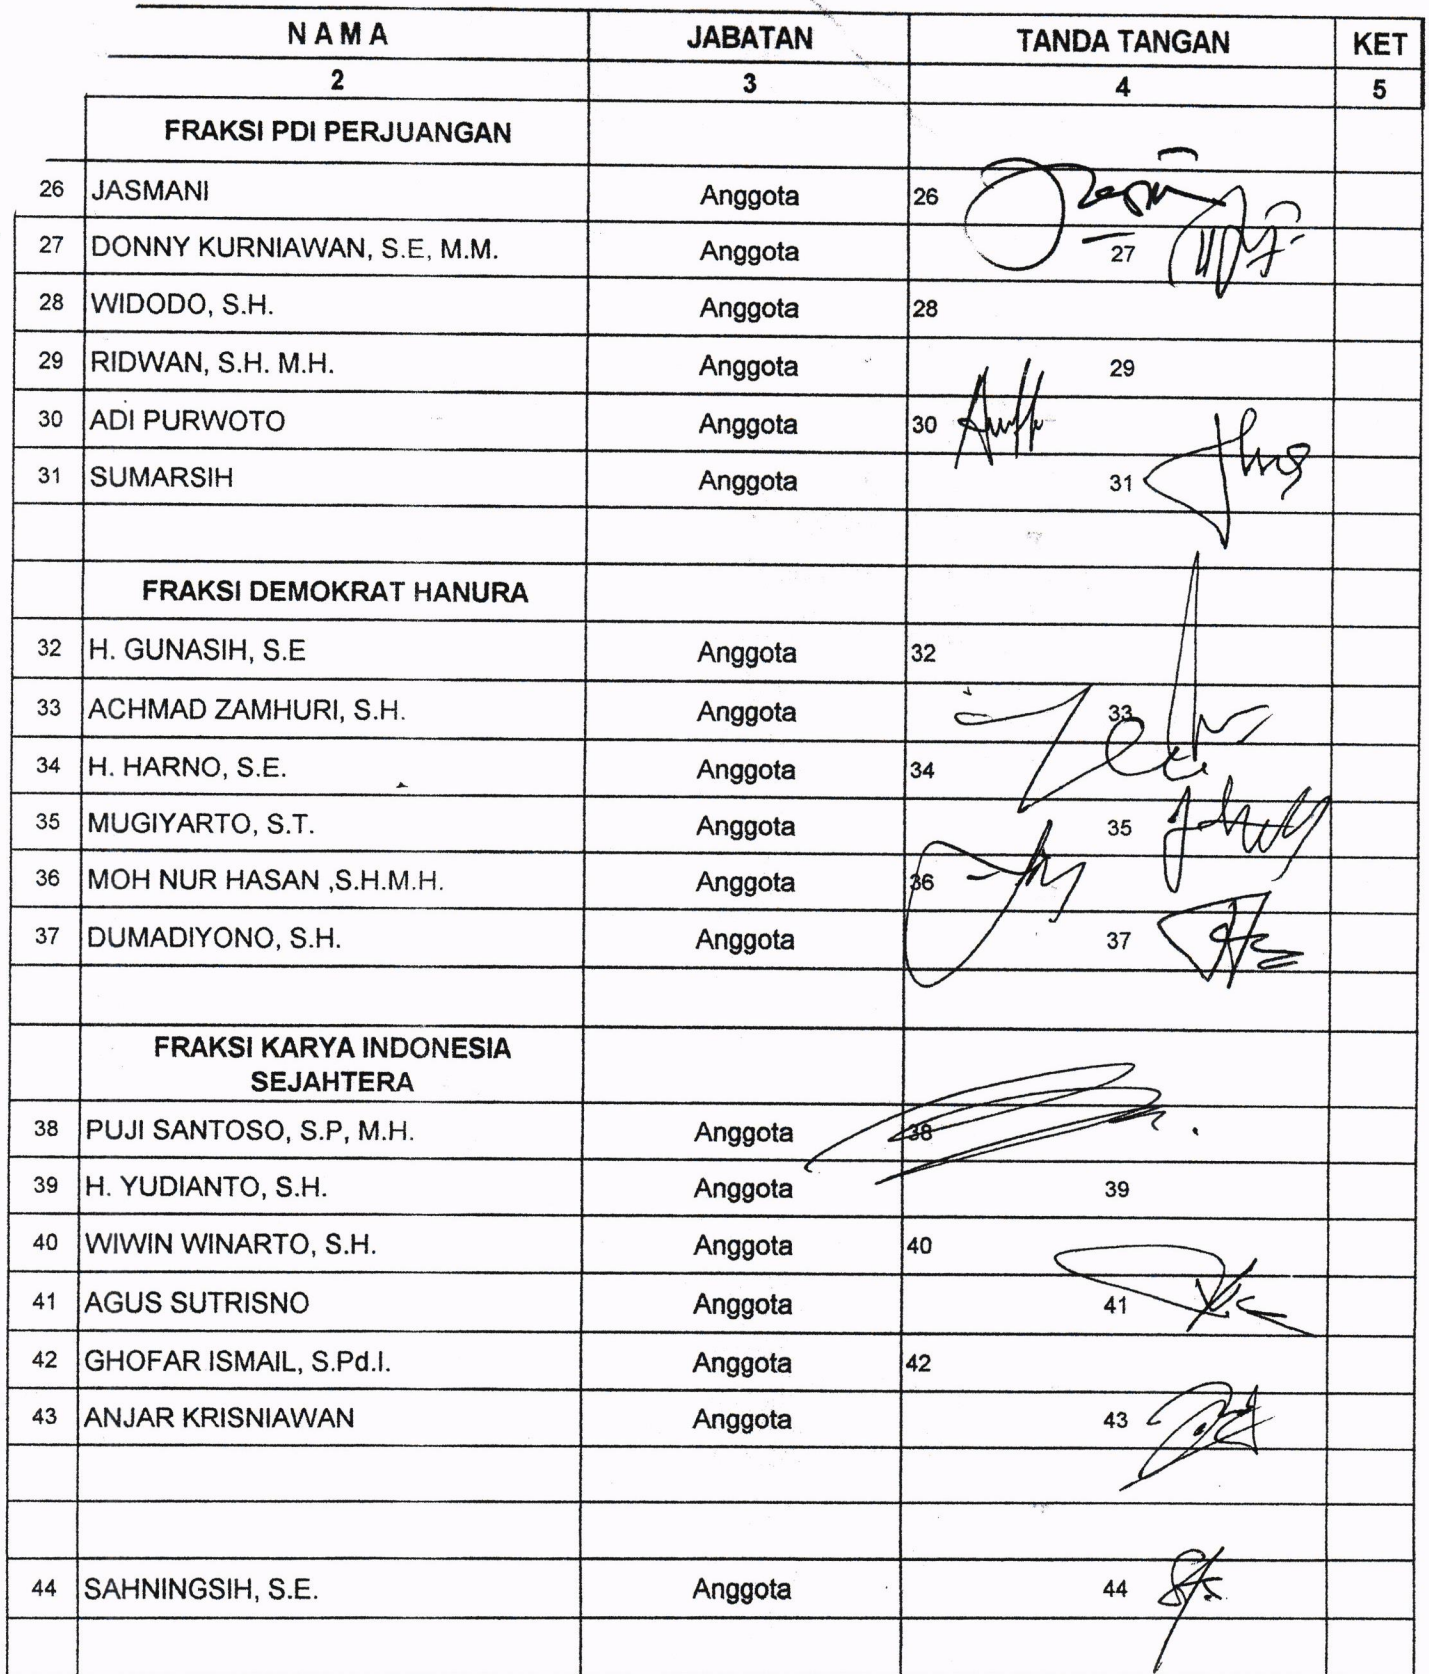 N A M A JABATAN TANDA TANGAN KET
2 3 4 5
FRAKSI PDI PERJUANGAN
26 JASMANI Anggota 26
27 DONNY KURNIAWAN, S.E, M.M. Anggota 27
28 WIDODO, S.H. Anggota 28
29 RIDWAN, S.H. M.H. Anggota 29
30 ADI PURWOTO Anggota 30
31 SUMARSIH Anggota 31
FRAKSI DEMOKRAT HANURA
32 H. GUNASIH, S.E Anggota 32
33 ACHMAD ZAMHURI, S.H. Anggota 33
34 H. HARNO, S.E. Anggota 34
35 MUGIYARTO, S.T. Anggota 35
36 MOH NUR HASAN ,S.H.M.H. Anggota 36
37 DUMADIYONO, S.H. Anggota 37
FRAKSI KARYA INDONESIA
SEJAHTERA
38 PUJI SANTOSO, S.P, M.H. Anggota 38
39 H. YUDIANTO, S.H. Anggota 39
40 WIWIN WINARTO, S.H. Anggota 40
41 AGUS SUTRISNO Anggota 41
42 GHOFAR ISMAIL, S.Pd.I. Anggota 42
43 ANJAR KRISNIAWAN Anggota 43
44 SAHNINGSIH, S.E. Anggota 44